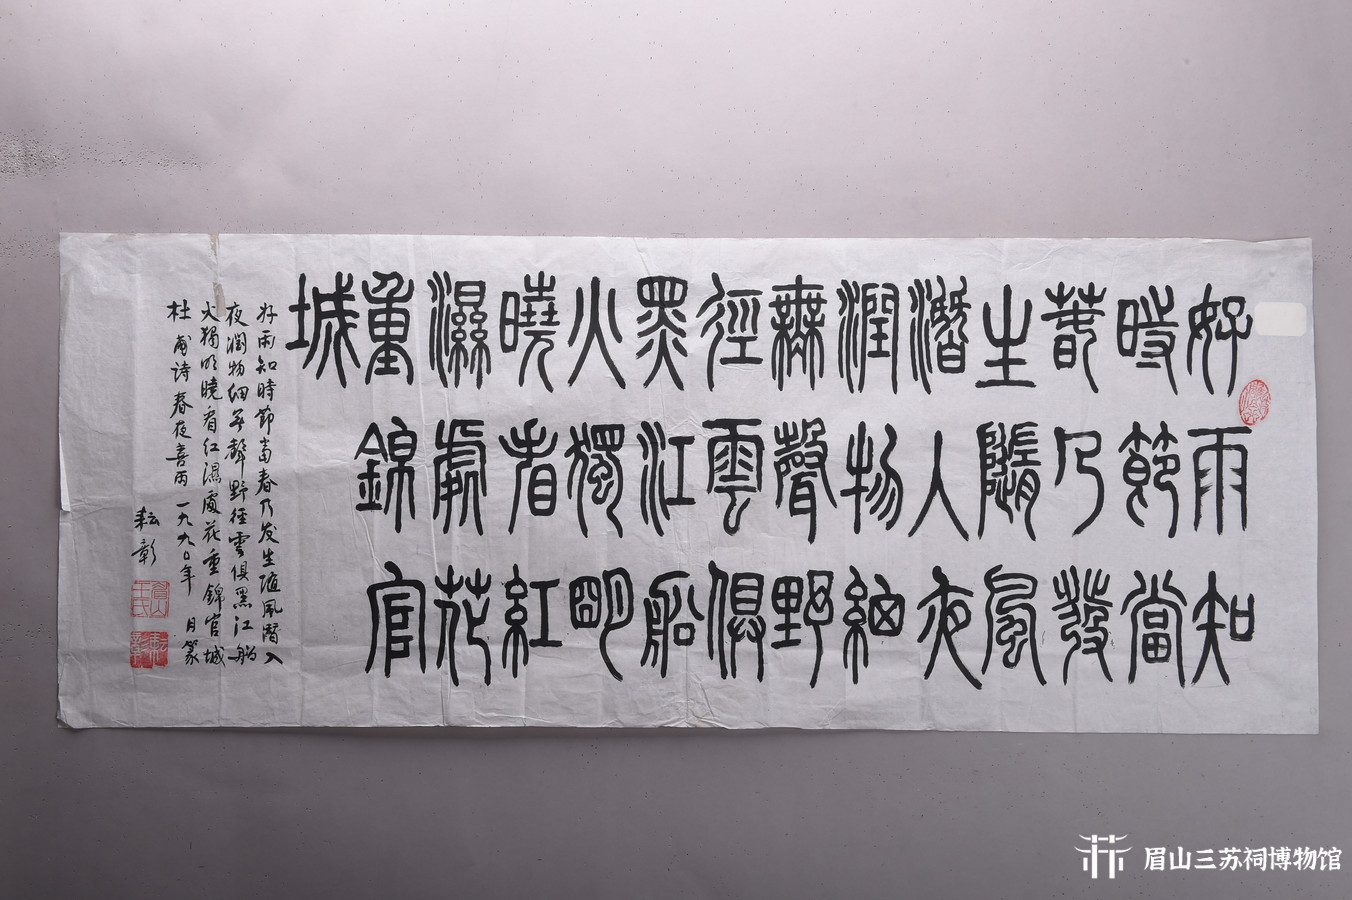 好雨知
時節當
春乃發
生隨風
潛人夜
潤物細
無聲野
徑雲俱
黑江船
火獨明
曉看紅
濕處花
重錦官
城
好雨知時節當春乃发生随风潛入
夜潤物细无聲野徑雲俱黑江船
火獨明曉看红濕處花重錦官城
杜甫诗春夜喜雨 一九九〇年 月篆
耘彰
眉山三苏祠博物馆